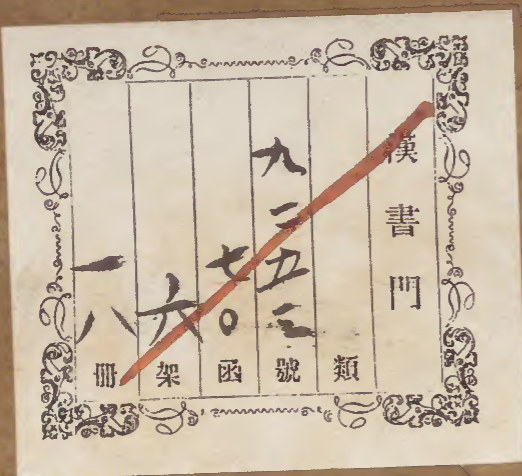 漢書門
類
九二五三號
七〇函
六架
一八冊